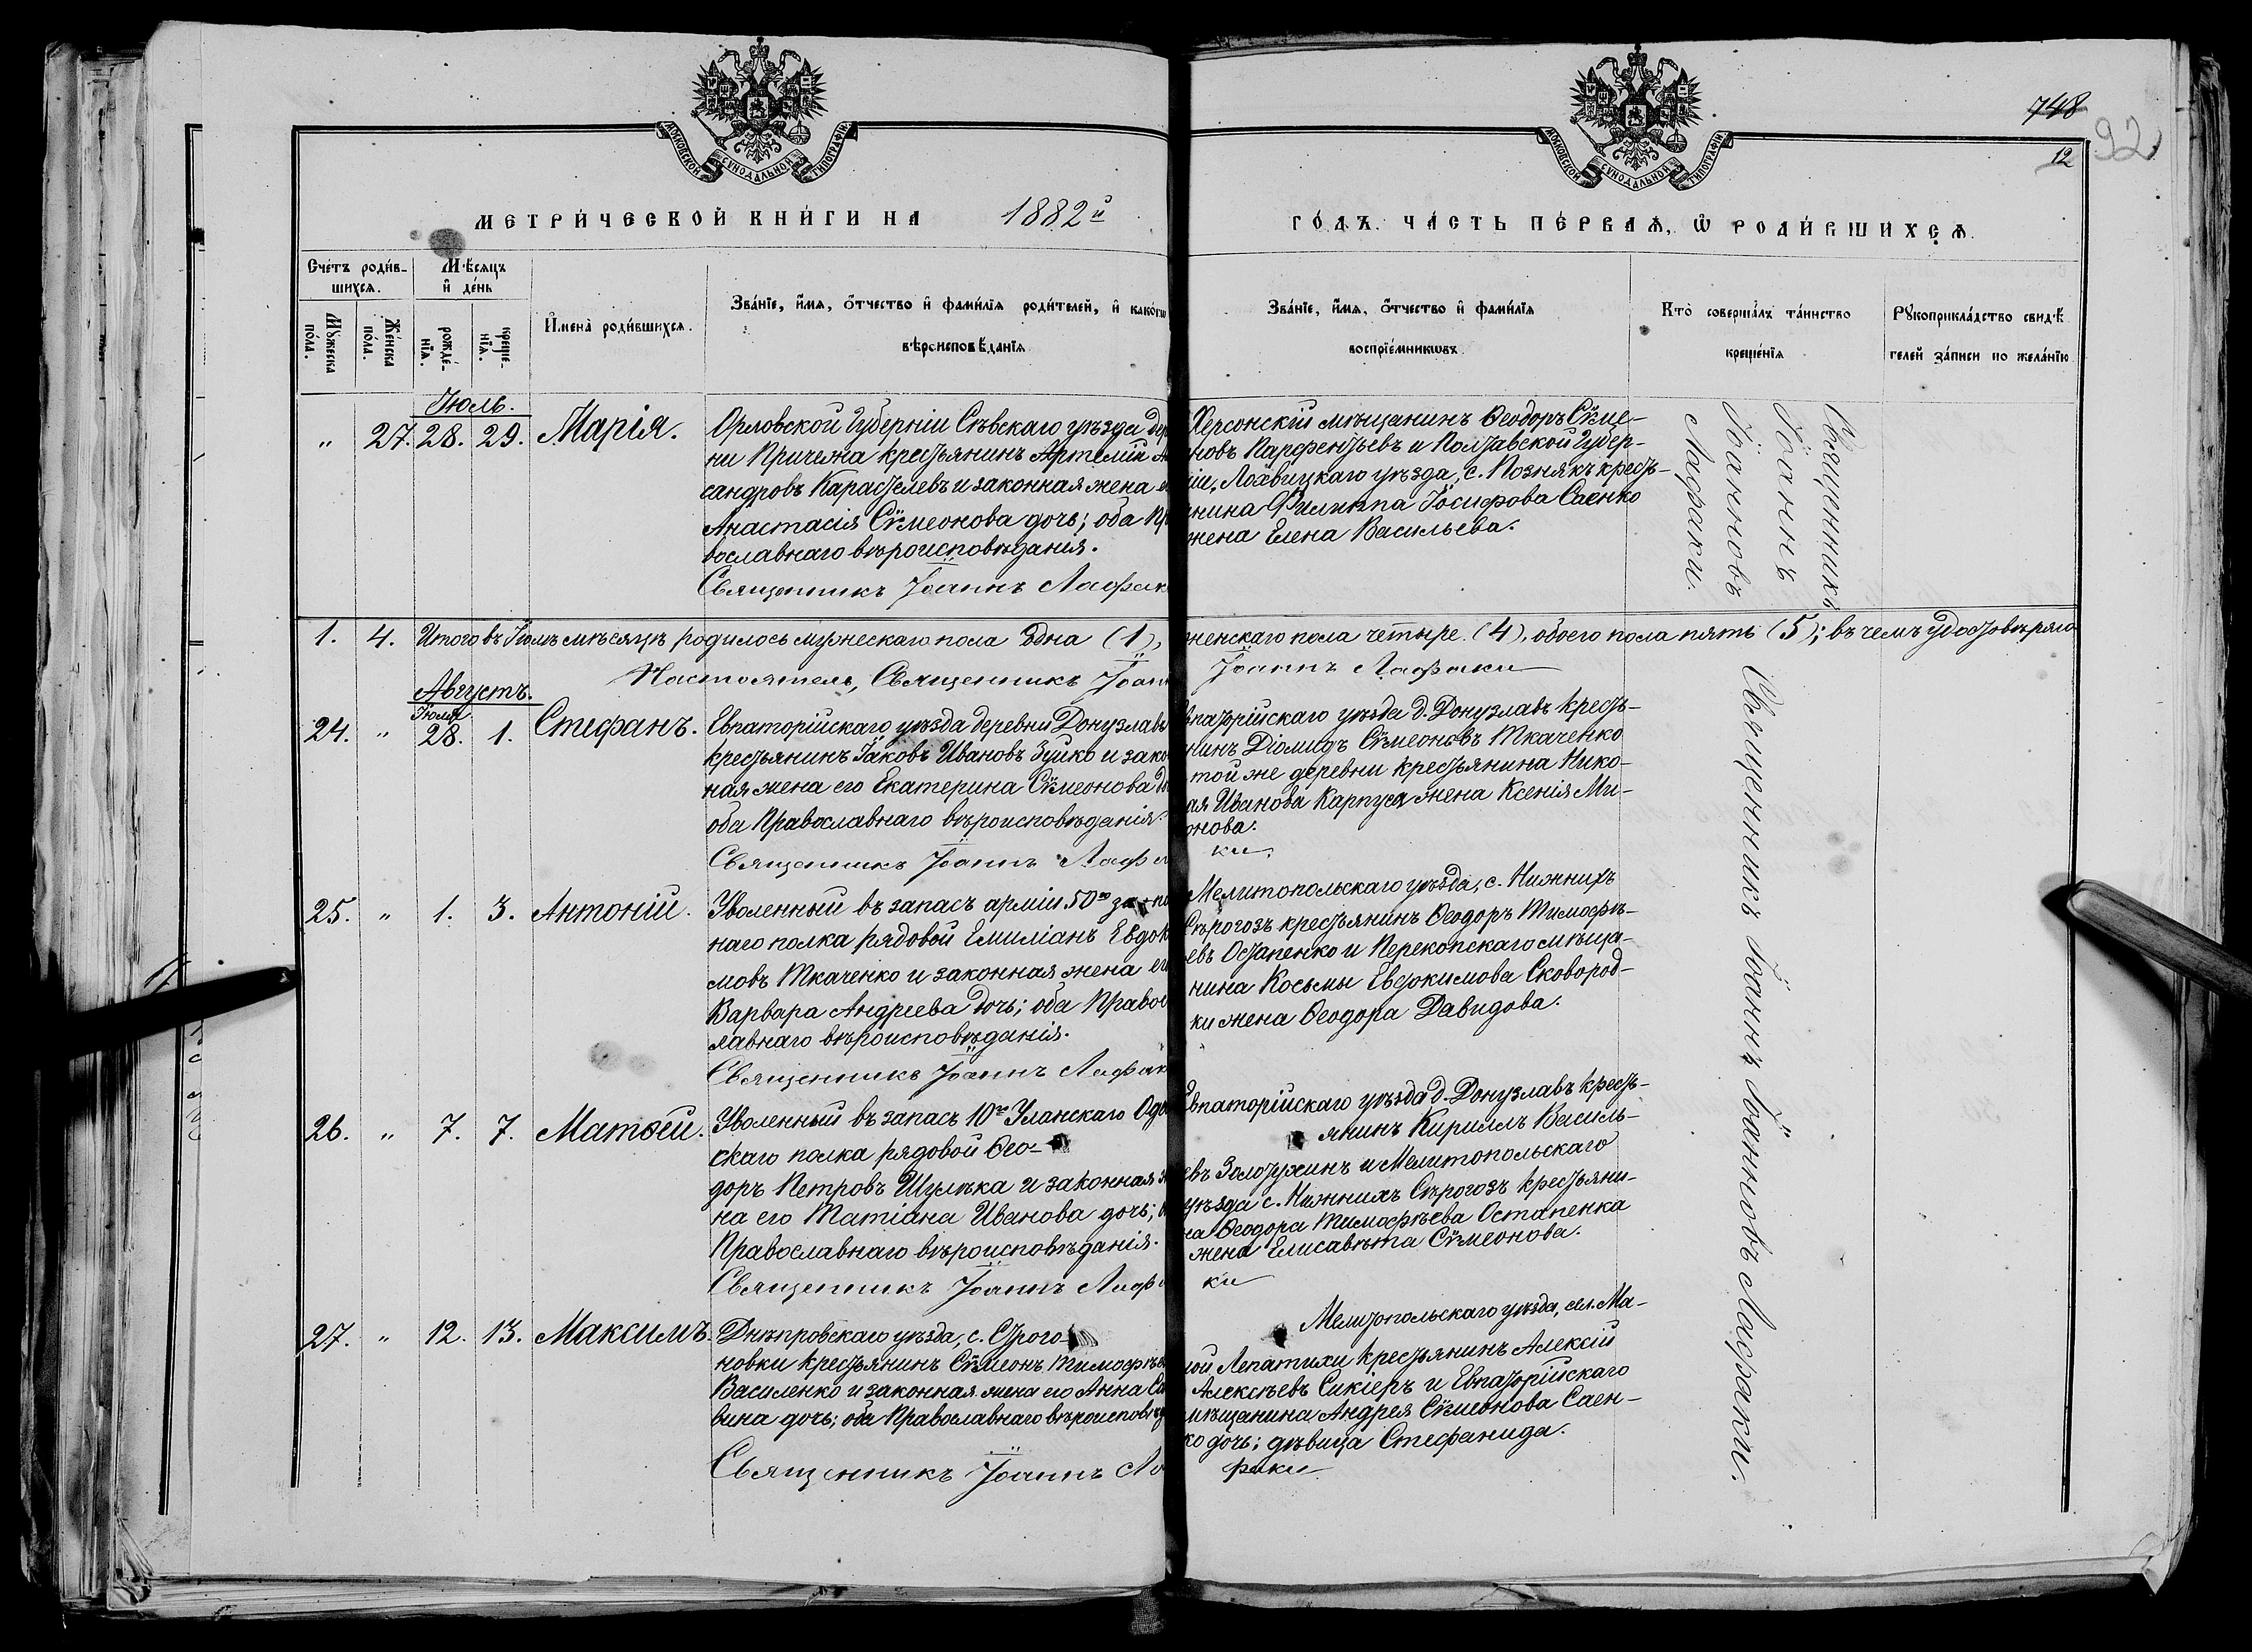 748
92
12
МОСКОВСКОЙ СУНОДАЛЬНОЙ ТИПОГРАФІИ
МОСКОВСКОЙ СУНОДАЛЬНОЙ ТИПОГРАФІИ
МЕТРИ́ЧЕСКОЙ КНИ́ГИ НА 1882й
ГО́ДЪ. ЧА́СТЬ ПЕ́РВАѦ, Ѡ РОДИ́ВШИХСѦ.
Сче́тъ роди́в-
шихсѧ.
Мꙋжеска по́ла.
Же́нска по́ла.
Мѣ́сѧцъ
и҆ де́нь
рожде́-
нїѧ.
креще́-
нїѧ.
И҆мена̀ роди́вшихсѧ.
Зва́нїе, и҆́мѧ, ѻ҆́тчество и҆ фами́лїѧ роди́телей, и҆ како́гѡ
вѣроисповѣ́данїѧ
Зва́нїе, и҆́мѧ, ѻ҆́тчество и҆ фами́лїѧ
воспрїе́мникѡвъ.
Кто̀ соверша́лъ та́инство
креще́нїѧ
Рꙋкоприкла́дство свидѣ́-
телей за́писи по жела́нїю
Іюль.
„ 27. 28. 29. Марія.
Орловской Губерніи Сѣвскаго уѣзда дер
ни Причежа крестьянинъ Артемій А
сандровъ Карастелевъ и законная жена е
Анастасія Сѵмеонова дочь; оба Пр
вославнаго вѣроисповѣданія.
Священникъ Іоаннъ Лафак
Херсонскій мѣщанинъ Ѳеодоръ Сѵме-
новъ Парфентьевъ и Полтавской Губер-
ніи, Лохвицкаго уѣзда, с. Познякъ кресть-
янина Филиппа Іосифова Саенко
жена Елена Васильева.
Священникъ
Іоаннъ
Іоанновъ
Лафаки.
1. 4. Итого въ Іюлѣ мѣсяцѣ родилось мужескаго пола одна (1), женскаго пола четыре (4), обоего пола пять (5); въ чемъ удостовѣряю
Настоятель, Священникъ Іоан Іоаннъ Лафаки
Августъ.
Іюля
24. „ 28. 1. Стефанъ.
Евпаторійскаго уѣзда деревни Донузлавъ
крестьянинъ Іаковъ Ивановъ Зуйко и зако
ная жена его Екатерина Сѵмеонова до
оба Православнаго вѣроисповѣданія.
Священникъ Іоаннъ Лафа
Евпаторійскаго уѣзда д. Донузлавъ кресть-
нинъ Діомидъ Сѵмеоновъ Ткаченко
той же деревни крестьянина Нико-
ая Иванова Карпуся жена Ксенія Ми-
онова.
ки.
25. „ 1. 3. Антоній.
Уволенный въ запасъ арміи 50го
наго полка рядовой Емиліанъ Евдок
мовъ Ткаченко и законная жена ег
Варвара Андреева дочь; оба Правос
лавнаго вѣроисповѣданія.
Священникъ Іоаннъ Лафак
Мелитопольскаго уѣзда, с. Нижнихъ
Сѣрогозъ крестьянинъ Ѳеодоръ Тимоѳѣ-
евъ Остапенко и Перекопскаго мѣща-
нина Косьмы Евдокимова Сковород-
ки жена Ѳеодора Давидова.
26. „ 7. 7. Матѳей.
Уволенный въ запасъ 10го Уланскаго Оде
скаго полка рядовой Ѳео-
доръ Петровъ Шулека и законная ж
на его Татіана Иванова дочь; о
Православнаго вѣроисповѣданія.
Священникъ Іоаннъ Лафа
Евпаторійскаго уѣзда д. Донузлавъ кресть-
янинъ Кириллъ Василь-
евъ Золотухинъ и Мелитопольскаго
уѣзда с. Нижнихъ Сѣрогозъ крестьяни-
на Ѳеодора Тимоѳѣева Остапенка
жена Елисавѣта Сѵмеонова.
ки
27. „ 12. 13. Максимъ.
Днѣпровскаго уѣзда, с. Строго-
новки крестьянинъ Сѵмеонъ Тимоѳѣев
Василенко и законная жена его Анна Са
вина дочь; оба Православнаго вѣроисповѣд
Священникъ Іоаннъ Ла
Мелитопольскаго уѣзда, сел. Ма-
лой Лепатихи крестьянинъ Алексій
Алексѣевъ Сикіеръ и Евпаторійскаго
мѣщанина Андрея Сѵмеонова Саен-
ко дочь; дѣвица Стефанида.
факи
Священникъ Іоаннъ Іоанновъ Лафаки.